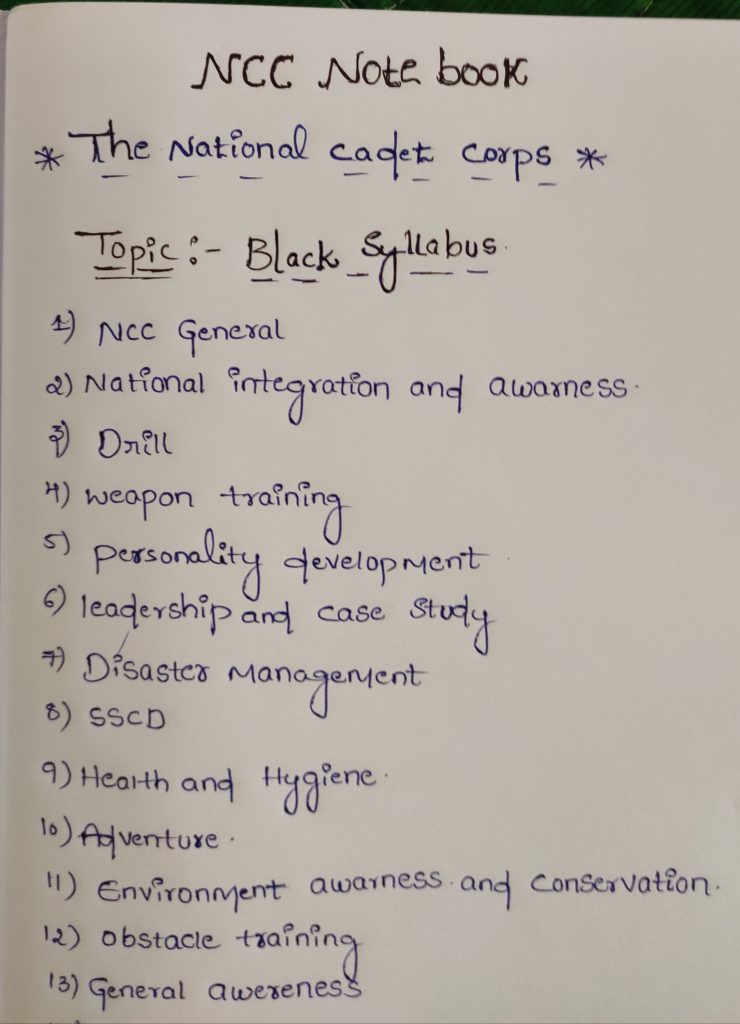 NCC Note book
* The National cadet corps *
Topic :- Black Syllabus.
1) NCC General
2) National integration and awarness.
3) Drill
4) weapon training
5) personality development
6) leadership and case study
7) Disaster Management
8) SSCD
9) Health and Hygiene.
10) Adventure.
11) Environment awarness and conservation.
12) obstacle training
13) General awereness